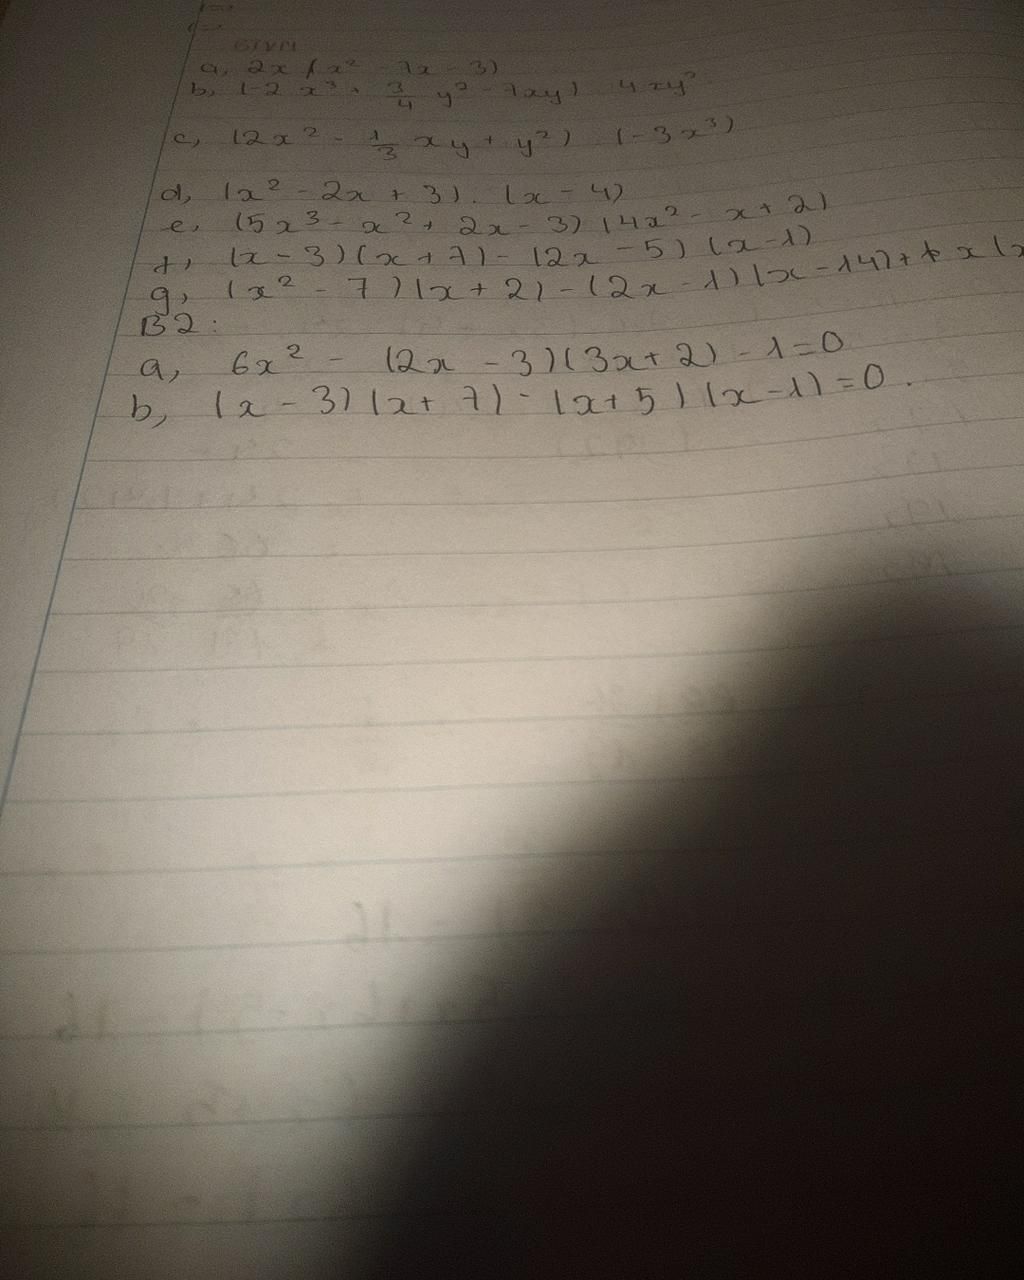 a, 2x (x² - 7x - 3)
b, (-2x³ + 3/4 y² - 7xy) 4xy²
c, (2x² - 1/3 xy + y²) (-3x³)
d, (x² - 2x + 3). (x - 4)
e, (5x³ - x² + 2x - 3) (4x² - x + 2)
f, (x - 3)(x + 7) - (2x - 5) (x - 1)
g, (x² - 7)(x + 2) - (2x - 1)(x - 14) + x (x
B2:
a, 6x² - (2x - 3)(3x + 2) - 1 = 0
b, (x - 3)(x + 7) - (x + 5)(x - 1) = 0.